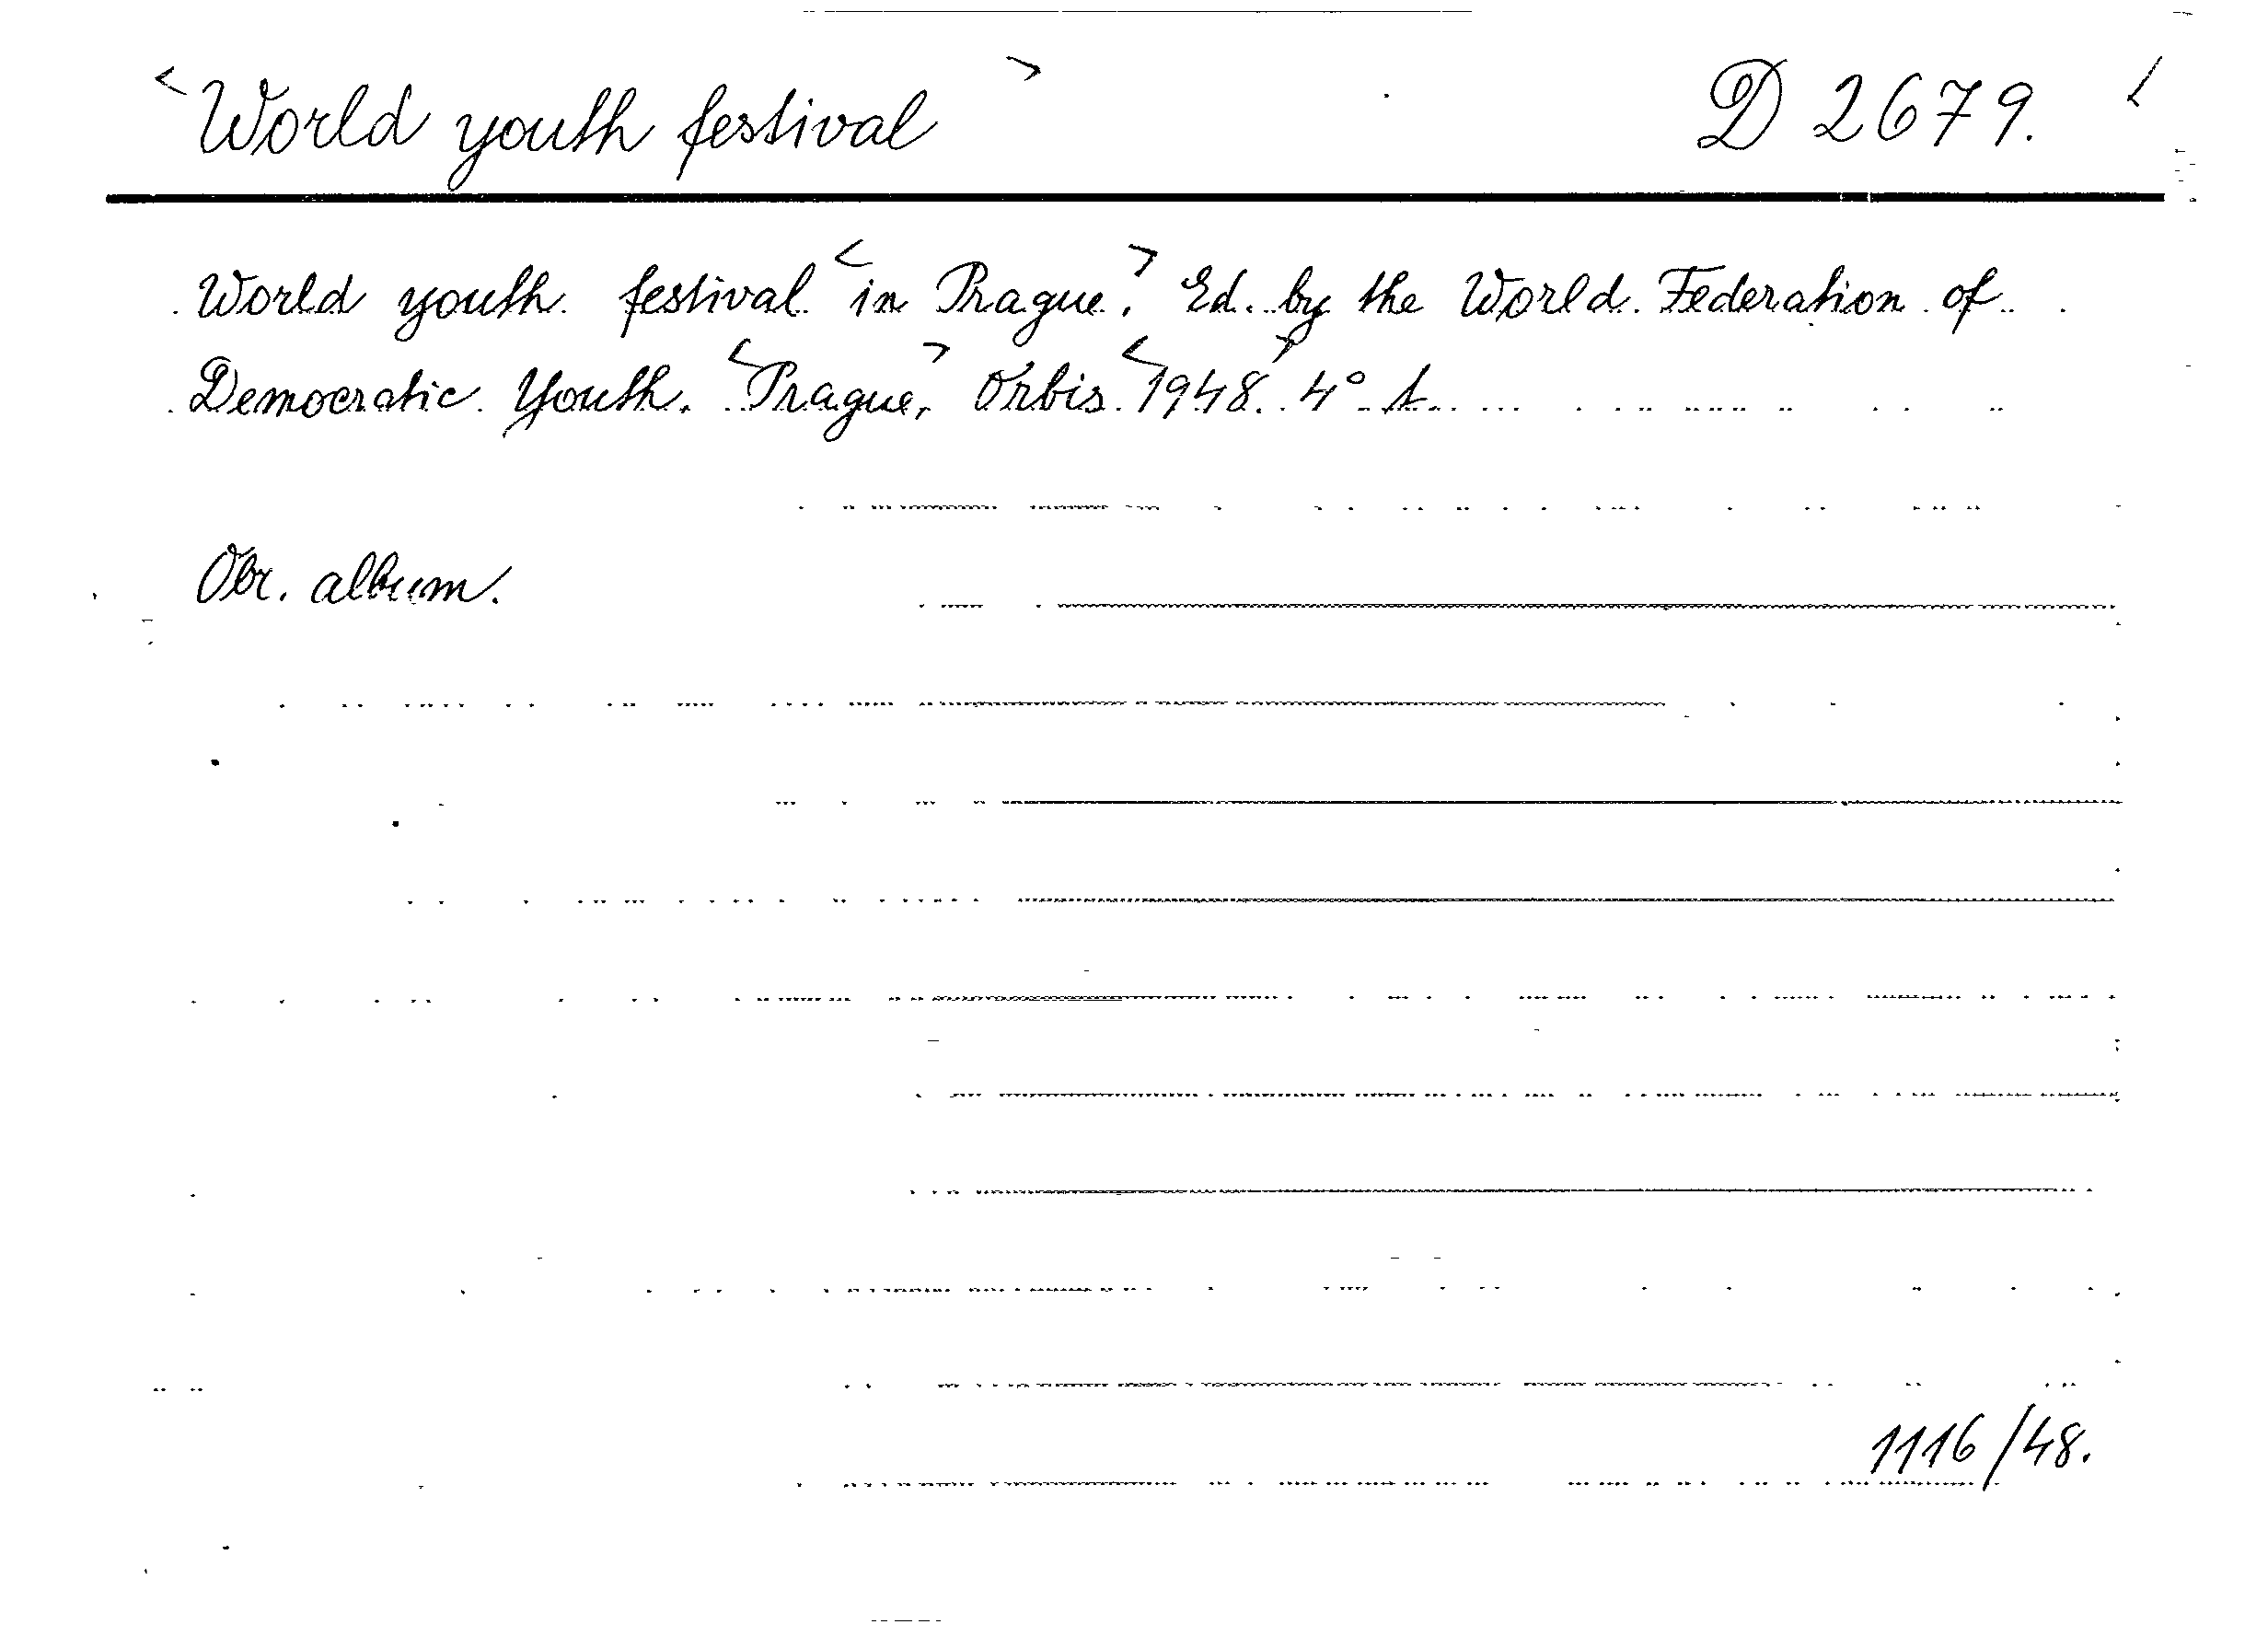 <World youth festival> D 2679.
World youth festival <in Prague.> Ed. by the World Federation of
Democratic Youth. <Prague,> Orbis <1948>. 4°
Obr. album.
1116/48.